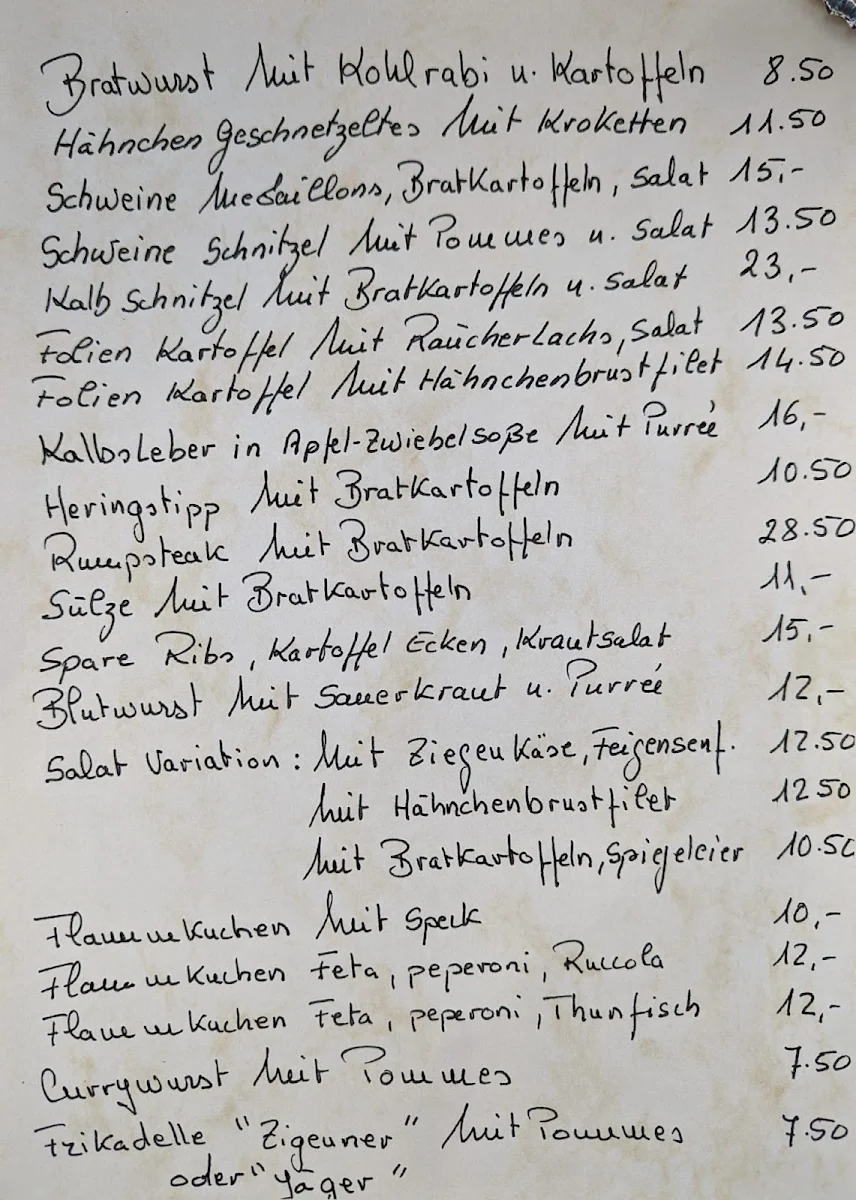 Bratwurst Mit Kohlrabi u. Kartoffeln 8.50
Hähnchen Geschnetzeltes Mit Kroketten 11.50
Schweine Medaillons, Bratkartoffeln, Salat 15,-
Schweine Schnitzel Mit Pommes u. Salat 13.50
Kalb Schnitzel Mit Bratkartoffeln u. Salat 23,-
Folien Kartoffel Mit Räucherlachs, Salat 13.50
Folien Kartoffel Mit Hähnchenbrustfilet 14.50
Kalbsleber in Apfel-Zwiebelsoße Mit Purreé 16,-
Heringstipp Mit Bratkartoffeln 10.50
Rumpsteak Mit Bratkartoffeln 28.50
Sülze Mit Bratkartoffeln 11,-
Spare Ribs, Kartoffel Ecken, Krautsalat 15,-
Blutwurst Mit Sauerkraut u. Purreé 12,-
Salat Variation: Mit Ziegenkäse, Feigensenf. 12.50
Mit Hähnchenbrustfilet 12 50
Mit Bratkartoffeln, Spiegeleier 10.50
Flammkuchen Mit Speck 10,-
Flammkuchen Feta, peperoni, Ruccola 12,-
Flammkuchen Feta, peperoni, Thunfisch 12,-
Currywurst Mit Pommes 7.50
Frikadelle "Zigeuner" Mit Pommes 7.50
oder "Jäger"